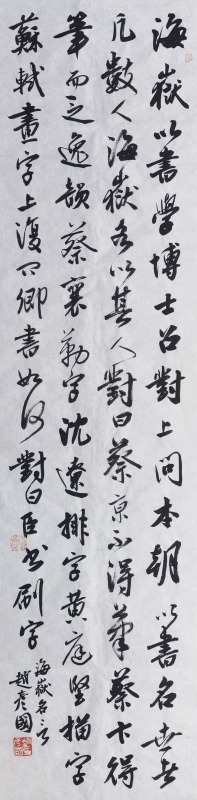 海嶽以書學博士召對上問本朝以書名世者
凡數人海嶽各以其人對曰蔡京不得筆蔡卞得
筆而乏逸韻蔡襄勒字沈遼排字黃庭堅描字
蘇軾畫字上復問卿書如何對曰臣書刷字
海嶽名言
趙彥國